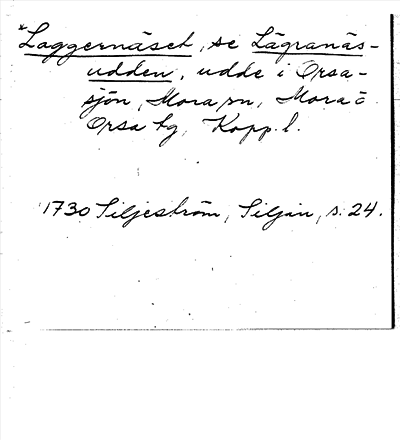 *Laggernäset, se Lägranäs-
udden, udde i Orsa-
sjön, Mora sn, Mora o
Orsa tg, Kopp. l.
1730 Siljeström, Siljan, s. 24.